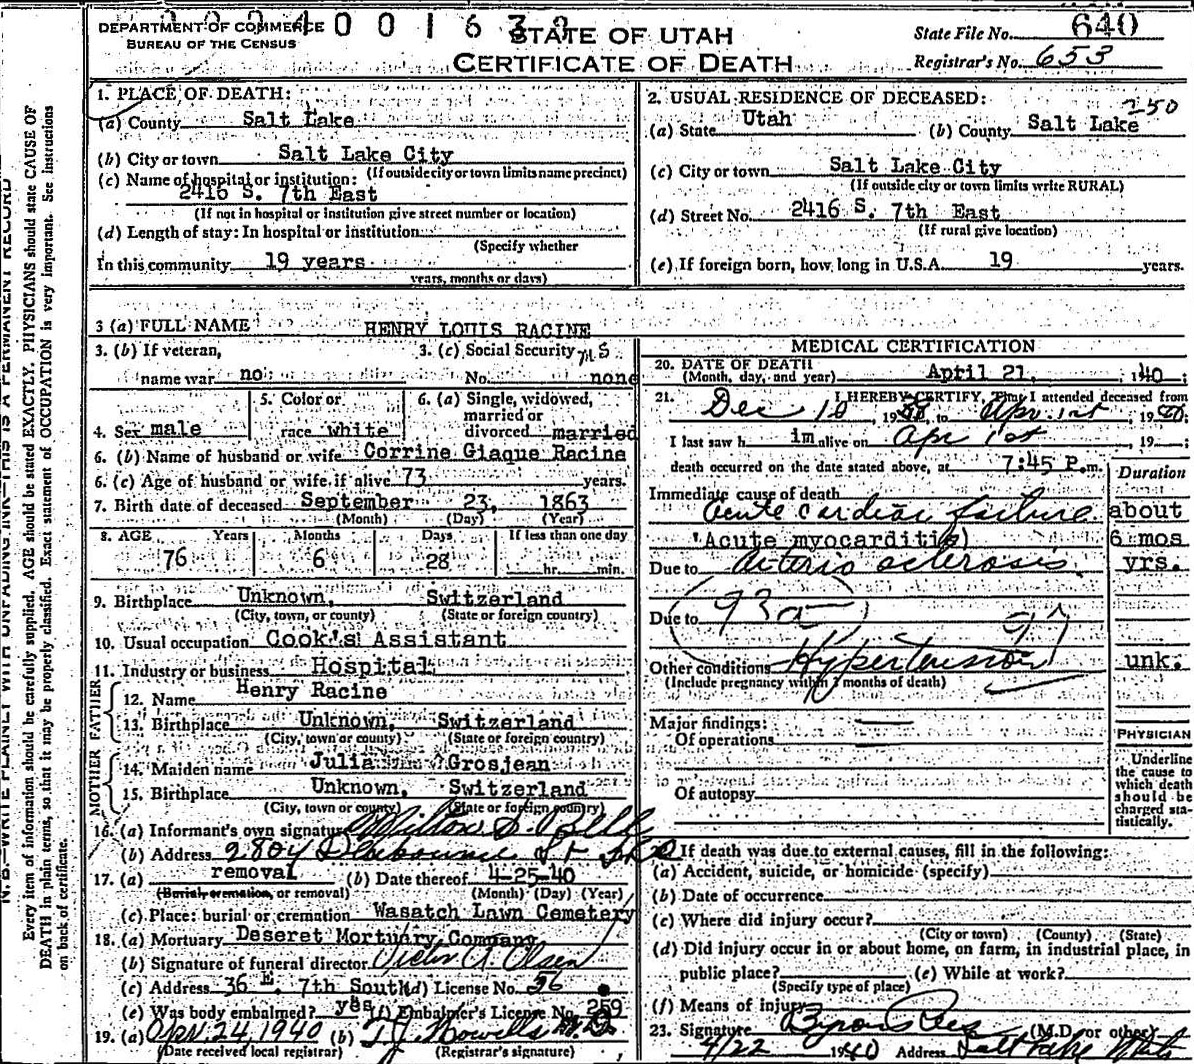 DEPARTMENT OF COMMERCE
BUREAU OF THE CENSUS
STATE OF UTAH
CERTIFICATE OF DEATH
State File No. 640
Registrar's No. 653
1. PLACE OF DEATH:
(a) County Salt Lake
(b) City or town Salt Lake City
(If outside city or town limits name precinct)
(c) Name of hospital or institution:
2416 S. 7th East
(If not in hospital or institution give street number or location)
(d) Length of stay: In hospital or institution
(Specify whether
In this community 19 years
years, months or days)
2. USUAL RESIDENCE OF DECEASED:
250
(a) State Utah (b) County Salt Lake
(c) City or town Salt Lake City
(If outside city or town limits write RURAL)
(d) Street No. 2416 S. 7th East
(If rural give location)
(e) If foreign born, how long in U.S.A. 19 years.
3 (a) FULL NAME HENRY LOUIS RACINE
3. (b) If veteran, name war no
3. (c) Social Security No. none
4. Sex male
5. Color or race white
6. (a) Single, widowed, married or divorced married
6. (b) Name of husband or wife Corrine Giaque Racine
6. (c) Age of husband or wife if alive 73 years.
7. Birth date of deceased September 23, 1863
(Month) (Day) (Year)
8. AGE Years Months Days If less than one day
76 6 28 hr. min.
9. Birthplace Unknown, Switzerland
(City, town, or county) (State or foreign country)
10. Usual occupation Cook's Assistant
11. Industry or business Hospital
FATHER
12. Name Henry Racine
13. Birthplace Unknown, Switzerland
(City, town or county) (State or foreign country)
MOTHER
14. Maiden name Julia Grosjean
15. Birthplace Unknown, Switzerland
(City, town or county) (State or foreign country)
16. (a) Informant's own signature Milton S. Bell
(b) Address 2804
17. (a) removal (b) Date thereof 4-25-40
(Burial, cremation, or removal) (Month) (Day) (Year)
(c) Place: burial or cremation Wasatch Lawn Cemetery
18. (a) Mortuary Deseret Mortuary Company
(b) Signature of funeral director Victor A. Olsen
(c) Address 36 E. 7th South (d) License No. 56
(e) Was body embalmed? yes (f) Embalmer's License No. 259
19. (a) Apr. 24, 1940 (b) T. J. Howells M.D.
(Date received local registrar) (Registrar's signature)
MEDICAL CERTIFICATION
20. DATE OF DEATH
(Month, day, and year) April 21, 1940;
21. I HEREBY CERTIFY, That I attended deceased from
Dec 10, 19 to Apr. 1st, 1940;
I last saw him alive on Apr 1st, 19 ;
death occurred on the date stated above, at 7:45 P.m.
Duration
Immediate cause of death
Acute cardiac failure about
(Acute myocarditis) 6 mos
Due to Arterio sclerosis. yrs.
93a
Due to
97
Other conditions Hypertension unk.
(Include pregnancy within 3 months of death)
Major findings:
Of operations
Of autopsy
PHYSICIAN
Underline the cause to which death should be charged statistically.
If death was due to external causes, fill in the following:
(a) Accident, suicide, or homicide (specify)
(b) Date of occurrence
(c) Where did injury occur?
(City or town) (County) (State)
(d) Did injury occur in or about home, on farm, in industrial place, in
public place? (e) While at work?
(Specify type of place)
(f) Means of injury
23. Signature Byron Rees (M.D. or other)
4/22 1940 Address Salt Lake
N.B.—WRITE PLAINLY WITH UNFADING INK—THIS IS A PERMANENT RECORD
Every item of information should be carefully supplied. AGE should be stated EXACTLY. PHYSICIANS should state CAUSE OF
DEATH in plain terms, so that it may be properly classified. Exact statement of OCCUPATION is very important. See Instructions
on back of certificate.